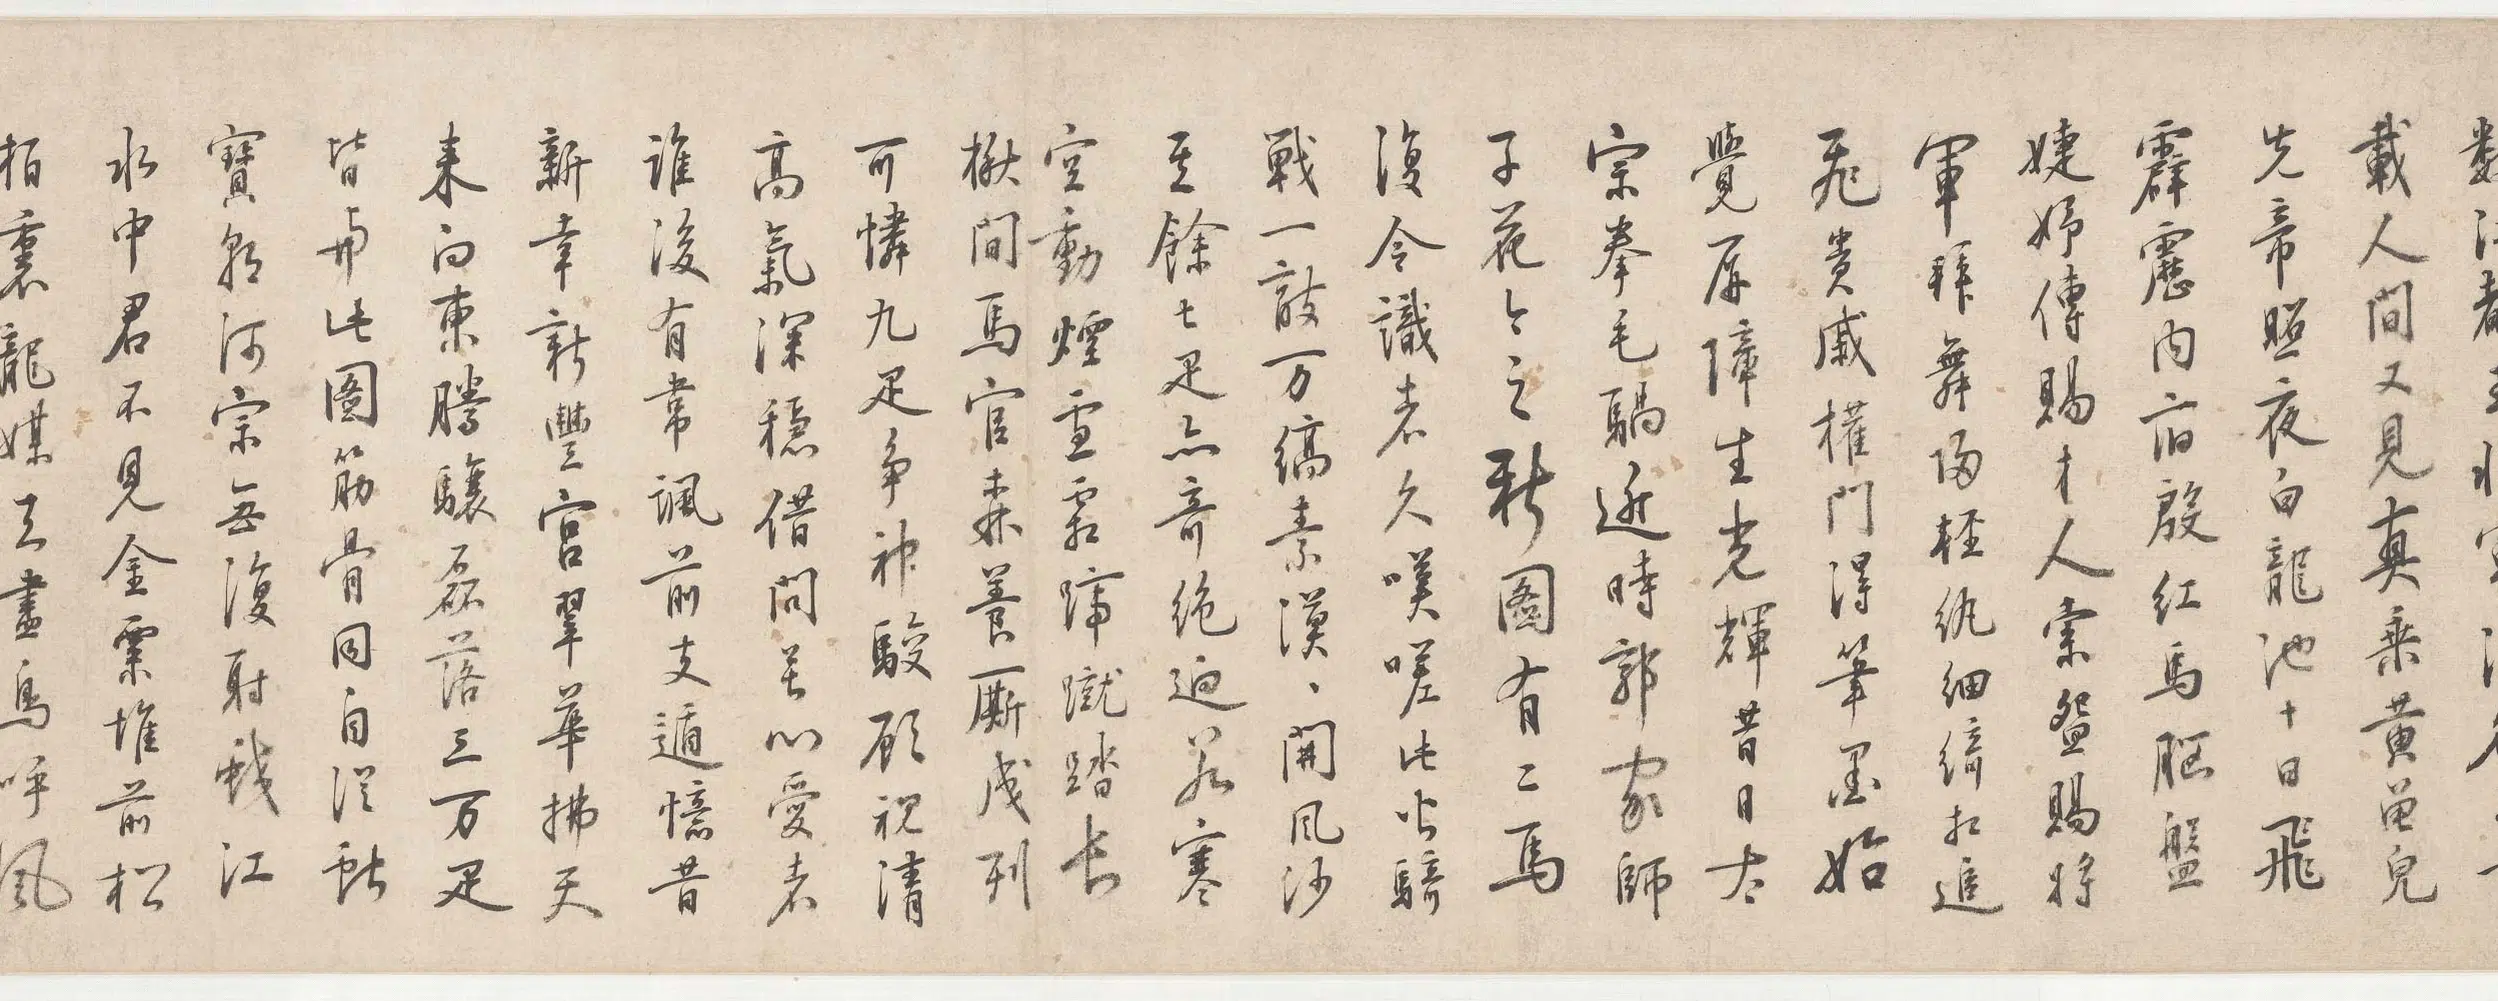 數江都王將軍得名三
載人間又見真乘黃曾皃
先帝照夜白龍池十日飛
霹靂內府殷紅馬腦盤
婕妤傳賜才人索盌賜將
軍拜舞歸輕紈細綺相追
飛貴戚權門得筆墨始
覺屏障生光輝昔日太
宗拳毛騧近時郭家師
子花今之新圖有二馬
復令識者久嘆嗟此皆騎
戰一敵万縞素漠、開風沙
其餘七疋亦奇絕迥若寒
空動煙雪霜蹄蹴踏長
楸間馬官森養厮成列
可憐九疋爭神駿顧視清
高氣深穩借問苦心愛者
誰後有韋諷前支遁憶昔
新幸新豐宮翠華拂天
來向東騰驤磊落三万疋
皆與此圖筋骨同自從獻
寶朝河宗無復射蛟江
水中君不見金粟堆前松
栢裏龍媒去盡鳥呼風